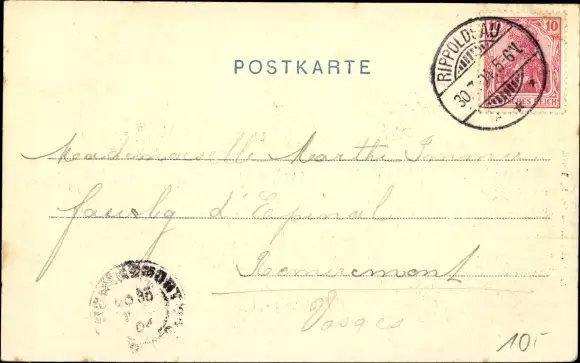 POSTKARTE
10
RIPPOLDSAU
30.7.04.5-6N.
DEUTSCHES REICH
Mademoiselle Marthe Immer
faubg d'Epinal
Remiremont
Vosges
REMIREMONT
10.-